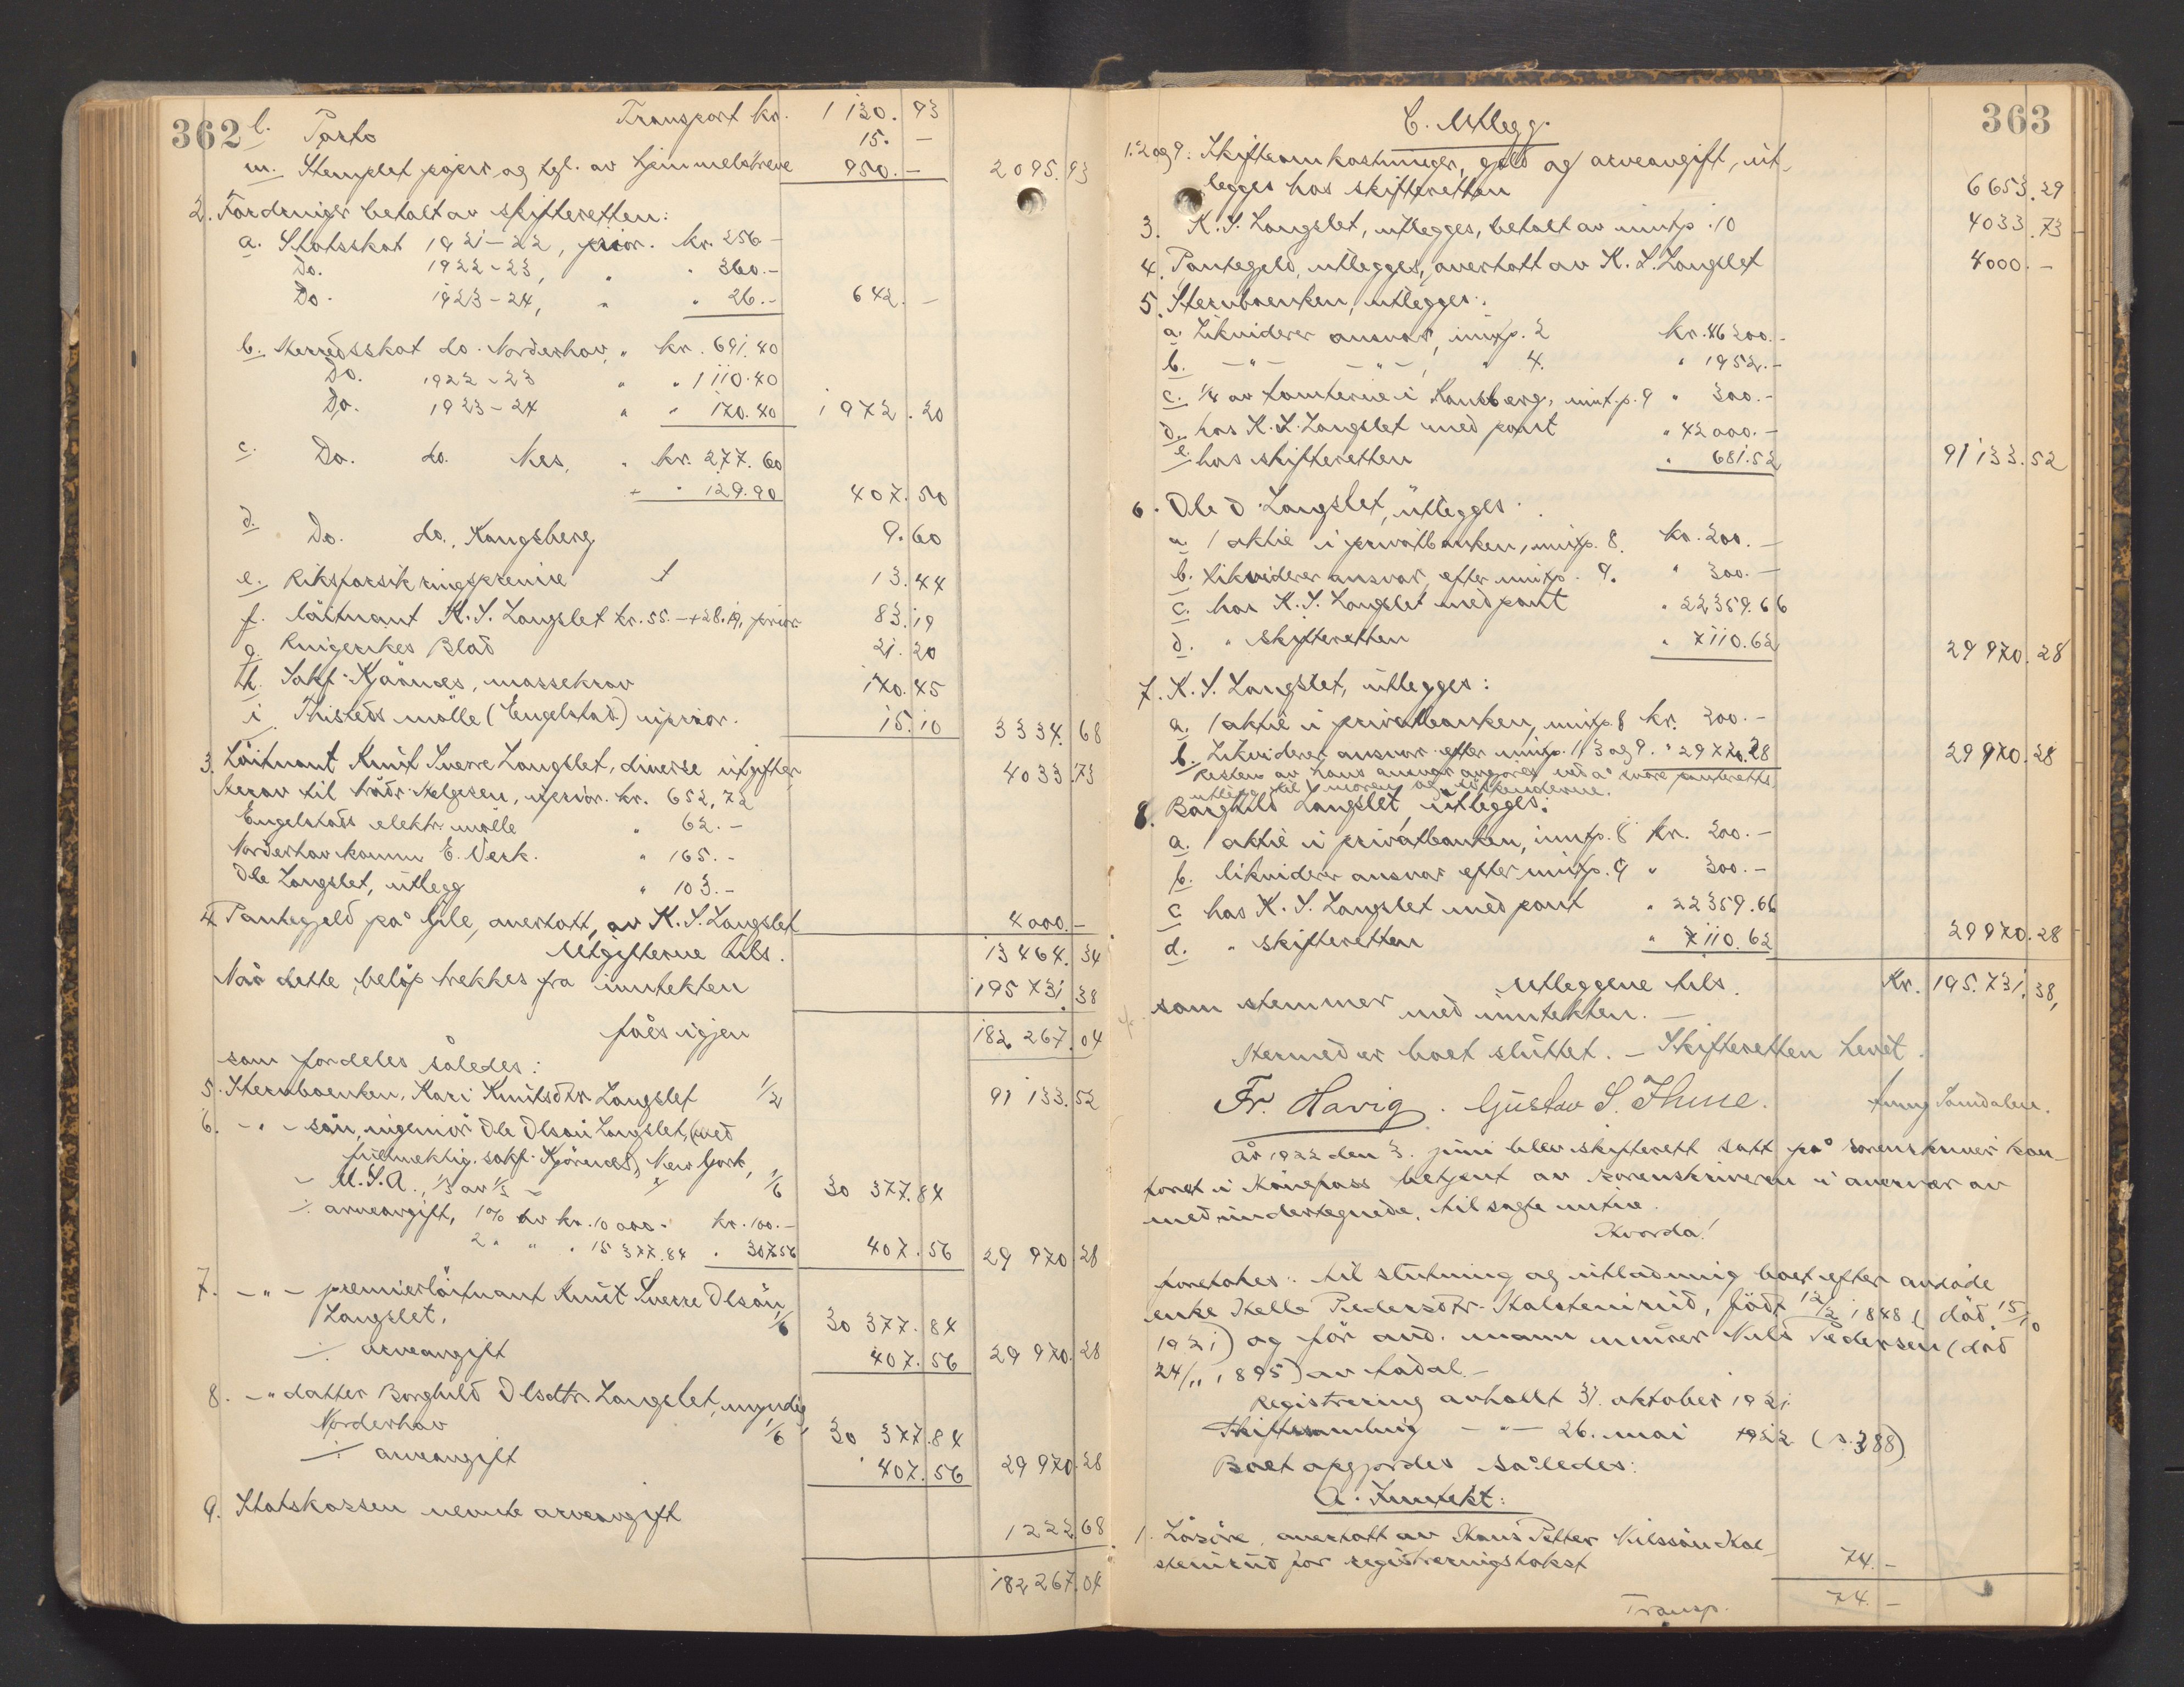 362
l. Porto Transport kr. 1130.93
15.-
m. Stemplet papir og tgl. av hjemmelsbreve 950.- 2095.93
2. Fordringer betalt av skifteretten:
a. Statsskat 1921-22, prior. kr. 256-
Do. 1922-23, " " 360.-
Do. 1923-24, " " 26.- 642.-
b. Herredsskat do. Norderhov, " kr. 691.40
Do. 1922-23 " " 1110.40
Do. 1923-24 " " 170.40 1972.20
c. Do. do. Nes, " kr. 277.60
+ " 129.90 407.50
d. Do. do., Kongsberg 9.60
e. Riksforsikringspremie 13.44
f. löitnant K. S. Langslet kr. 55.-+28.19, prior. 83.19
g. Ringerikes Blad 21.20
h. Sakf. Kjörnæs, massekrav 170.45
i. Thisteds mölle (Engelstad) uprior. 15.10 3334.68
3. Löitnant Knut Sverre Langslet, diverse utgifter, 4033.73
Herav til hrådr. Helgesen, uprior. kr. 652,72
Engelstads elektr. mölle " 62.-
Norderhov komm. E. Verk. " 165.-
Ole Langslet, utlegg " 103.-
4. Pantegjeld på Lyle, overtatt, av K. S. Langslet 4000.-
Utgifterne tils. 13464.34
Når dette belöp trekkes fra inntekten 195731.38
fåes igjen 182267.04
som fordeles således:
5. Stervboenken, Kari Knutsdtr. Langslet 1/2 91133.52
6. -"- sön, ingeniör Ole Olsön Langslet, (med
fuldmektig. sakf. Kjörnæs), New York,
- U.S.A., 1/3 av 1/2 - 1/6 30377.84
÷ arveavgift, 1% av kr. 10000.- kr. 100.-
2 " " " 15377.84 " 307.56 407.56 29970.28
7. -"- premierlöitnant Knut Sverre Olsön
Langslet, 1/6 30377.84
÷ arveavgift 407.56 29970.28
8. -"- datter Borghild Olsdtr. Langslet, myndig
Norderhov 1/6 30377.84
÷ arveavgift 407.56 29970.28
9. Statskassen nevnte arveavgift 1222.68
182267.04
363
C. Utlegg.
1. 2 og 9. Skifteomkostninger, gjeld og arveavgift, ut-
legges hos skifteretten 6653.29
3. K. S. Langslet, utlegges, betalt av inntp. 10 4033.73
4. Pantegjeld, utlegges, overtatt av K. S. Langslet 4000.-
5. Stervboenken, utlegges:
a. Likviderer ansvar, inntp. 2 kr. 46200.-
b. -"- -"-, " 4. " 1952.-
c. 1/4 av tomterne i Kongsberg, innt.p. 9 " 300.-
d. hos K. S. Langslet med pant " 42000.-
e. hos skifteretten " 681.52 91133.52
6. Ole O. Langslet, utlegges:
a. 1 aktie i privatbanken, inntp. 8. kr. 200.-
b. Likviderer ansvar, efter inntp. 9. " 300.-
c. hos K. S. Langslet med pant " 22359.66
d. " skifteretten " 7110.62 29970.28
7. K. S. Langslet, utlegges:
a. 1 aktie i privatbanken, inntp. 8 kr. 200.-
b. Likviderer ansvar efter inntp. 1, 3 og 9. " 29770.28 29970.28
Resten av hans ansvar avgöres ved å svare panteretts
utlegg til moren og söskenderne.
8. Borghild Langslet, utlegges:
a. 1 aktie i privatbanken, inntp. 8 kr. 200.-
b. likviderer ansvar efter inntp. 9 " 300.-
c. hos K. S. Langslet med pant " 22359.66
d. " skifteretten " 7110.62 29970.28
Utleggene tils. kr. 195.731.38,
som stemmer med inntekten. -
Hermed er boet sluttet. - Skifteretten hevet.
Fr. Havig. Gustav S. Thune.
År 1922 den 3. juni blev skifterett satt på sorenskriverkon-
toret i Hönefoss betjent av sorenskriveren i overvær av
medundertegnede, tilsagte vitne.
Hvorda!
foretokes: til slutning og utlodning boet efter avdöde
enke Helle Pedersdtr. Halstenrud, född 12/2 1848 (död 15/10
1921) og för avd. mann murer Nils Pedersen (död
24/11 1895) av Ådal.-
Registrering avholdt 31. oktober 1921
Skiftesamling -"- 26. mai 1922 (s. 388)
Boet opgjordes således:
A. Inntekt:
1. Lösöre, overtatt av Hans Petter Nilssön Hal-
stenrud for registreringstakst 74.-
Transp. 74.-